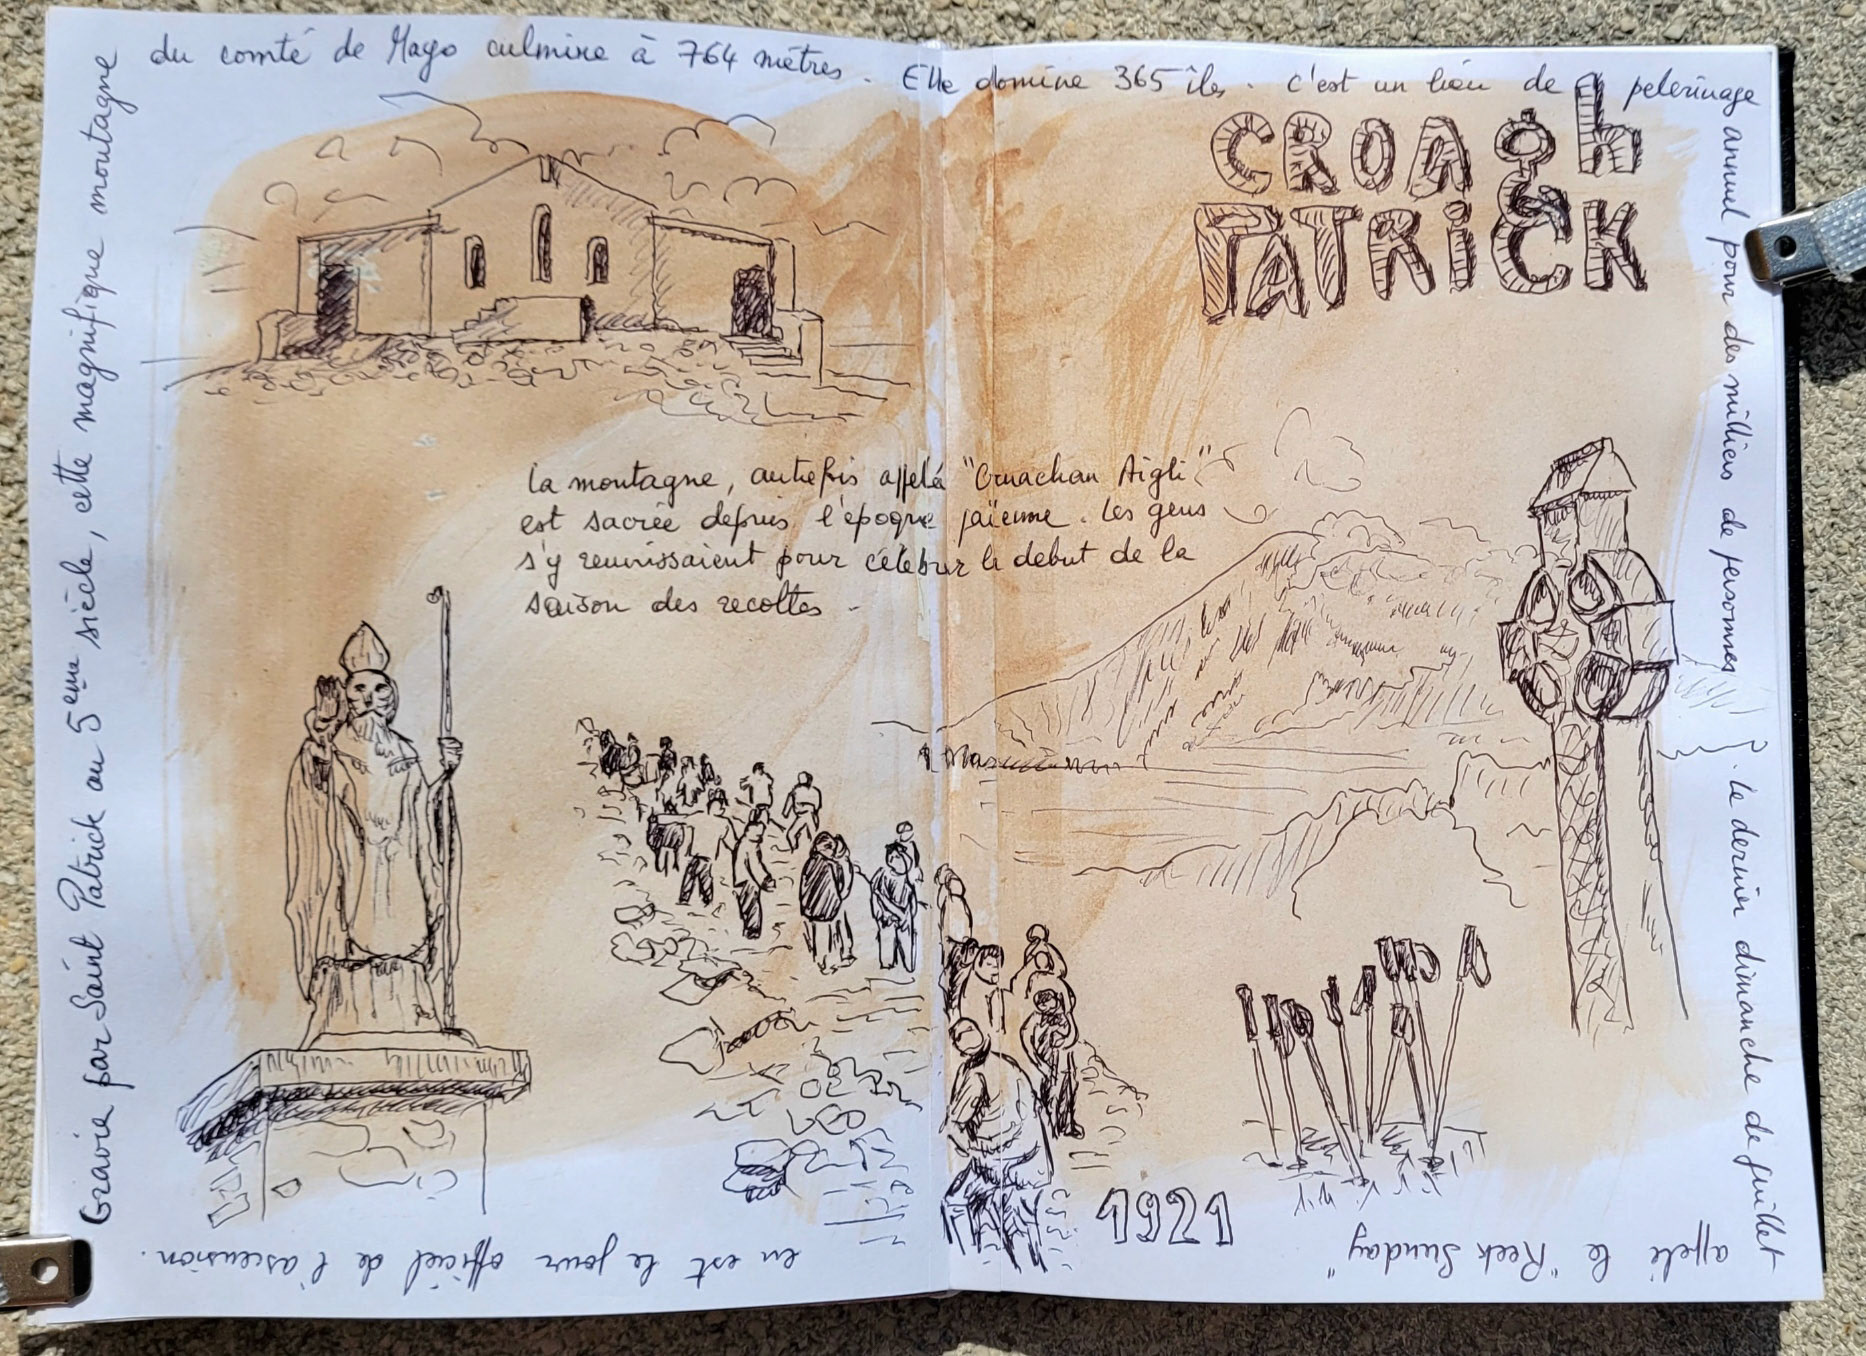 Gravie par Saint Patrick au 5ème siècle, cette magnifique montagne
du comté de Mayo culmine à 764 mètres. Elle domine 365 îles. c'est un lieu de pelerinage
annuel pour des milliers de personnes. Le dernier dimanche de juillet
appelé le "Reek Sunday"
en est le jour officiel de l'ascension.
CROAgh
PATRiCK
La montagne, autrefois appelé "Cruachan Aigli"
est sacrée depuis l'époque païenne. Les gens
s'y reunissaient pour célébrer le debut de la
saison des recoltes.
1921